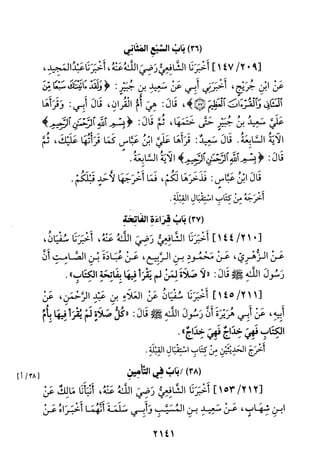 (٣٦) بَابُ السَّبْعِ المَثَانِي
[١٤٧/٢٠٩] أَخْبَرَنَا الشَّافِعِيُّ رَضِيَ اللَّهُ عَنْهُ، أَخْبَرَنَا عَبْدُ المَجِيدِ،
عَنْ ابْنِ جُرَيْجٍ، أَخْبَرَنِي أَبِي عَنْ سَعِيدِ بنِ جُبَيْرٍ: ﴿وَلَقَدْ ءَاتَيْنَاكَ سَبْعًا مِّنَ
الْمَثَانِي وَالْقُرْءَانَ الْعَظِيمَ ﴿٨٧﴾﴾، قَالَ: هِيَ أُمُّ القُرآنِ، قَالَ أَبِي: وَقَرَأَهَا
عَلَيَّ سَعِيدُ بنُ جُبَيْرٍ حَتَّى خَتَمَهَا، ثُمَّ قَالَ: ﴿بِسْمِ اللَّهِ الرَّحْمَنِ الرَّحِيمِ﴾
الآيَةُ السَّابِعَةُ. قَالَ سَعِيدٌ: قَرَأَهَا عَلَيَّ ابْنُ عَبَّاسٍ كَمَا قَرَأْتُهَا عَلَيْكَ، ثُمَّ
قَالَ: ﴿بِسْمِ اللَّهِ الرَّحْمَنِ الرَّحِيمِ﴾ الآيَةُ السَّابِعَةُ.
قَالَ ابْنُ عَبَّاسٍ: فَذَخَرَهَا لَكُمْ، فَمَا أَخْرَجَهَا لأَحَدٍ قَبْلَكُمْ.
أَخْرَجَهُ مِنْ كِتَابِ اسْتِقْبَالِ القِبْلَةِ.
(٣٧) بَابُ قِرَاءَةِ الفَاتِحَةِ
[١٤٤/٢١٠] أَخْبَرَنَا الشَّافِعِيُّ رَضِيَ اللَّهُ عَنْهُ، أَخْبَرَنَا سُفْيَانُ،
عَنِ الزُّهْرِيِّ، عَنْ مَحْمُودِ بنِ الرَّبِيعِ، عَنْ عُبَادَةَ بْنِ الصَّامِتِ أَنَّ
رَسُولَ اللَّهِ ﷺ قَالَ: «لَا صَلَاةَ لِمَنْ لَمْ يَقْرَأْ فِيهَا بِفَاتِحَةِ الكِتَابِ».
[١٤٥/٢١١] أَخْبَرَنَا سُفْيَانُ عَنْ العَلَاءِ بنِ عَبْدِ الرَّحْمَنِ، عَنْ
أَبِيهِ، عَنْ أَبِي هُرَيْرَةَ أَنَّ رَسُولَ اللَّهِ ﷺ قَالَ: «كُلُّ صَلَاةٍ لَمْ يُقْرَأْ فِيهَا بِأُمِّ
الكِتَابِ فَهِيَ خِدَاجٌ فَهِيَ خِدَاجٌ».
أَخْرَجَ الحَدِيثَيْنِ مِنْ كِتَابِ اسْتِقْبَالِ القِبْلَةِ.
(٣٨) بَابٌ فِي التَّأْمِينِ
[٣٨/أ]
[١٥٣/٢١٢] أَخْبَرَنَا الشَّافِعِيُّ رَضِيَ اللَّهُ عَنْهُ، أَنْبَأَنَا مَالِكٌ عَنْ
ابنِ شِهَابٍ، عَنْ سَعِيدِ بنِ المُسَيَّبِ وَأَبِي سَلَمَةَ أَنَّهُمَا أَخْبَرَاهُ عَنْ
٢١٤١